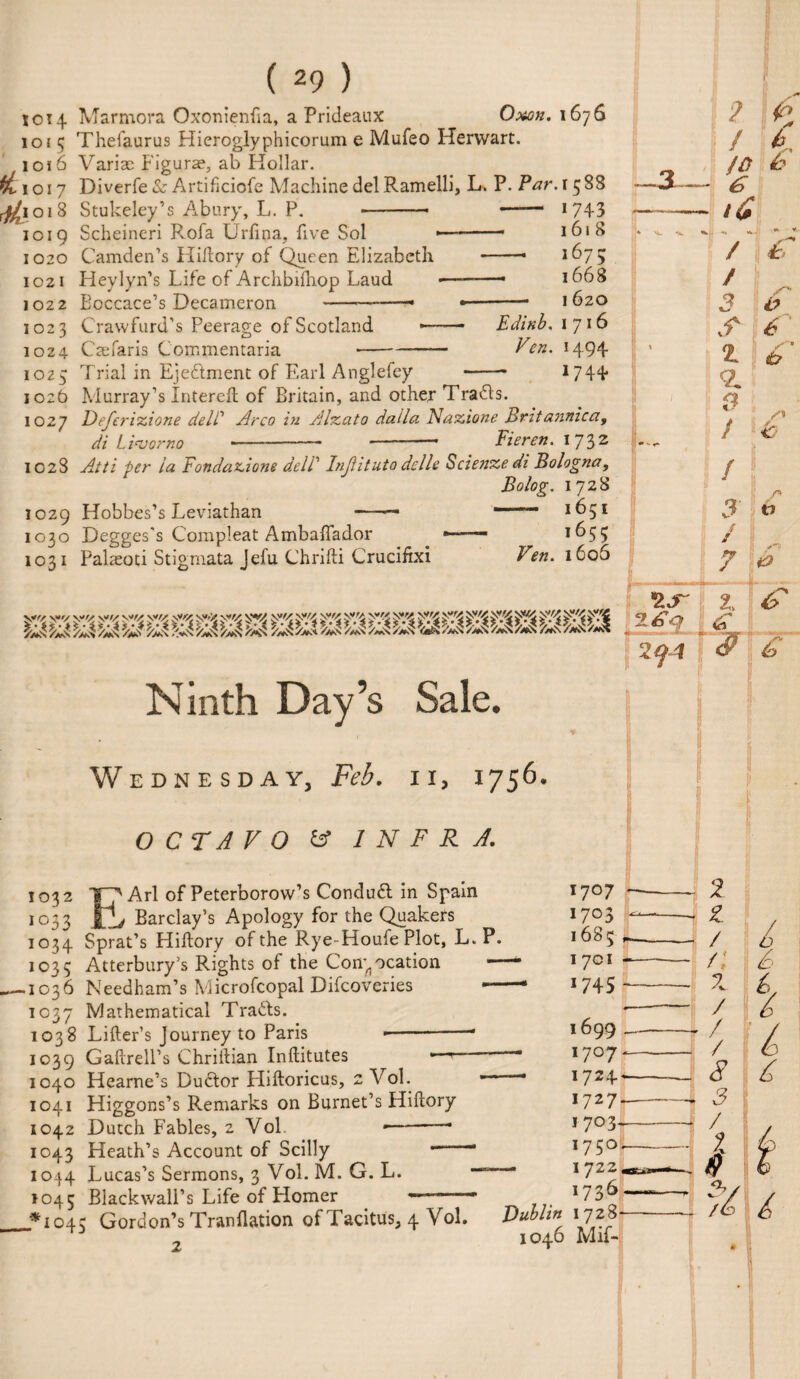 ( 29 )
1014 Marmora Oxonienſia, a Prideaux Oxon. 1676 2 6
1015 Theſaurus Hieroglyphicorum e Muſeo Herwart. 1 6
1016 Variæ Figuræ, ab Hollar. 10 6
1017 Diverſe & Artificioſe Machine del Ramelli, L. P. Par. 1588 —3— 6
1018 Stukeley's Abury, L. P. —— —— 1743 —— 16
1019 Scheineri Roſa Urſina, five Sol —— 1618
1020 Camden's Hiſtory of Queen Elizabeth —— 1675 1 6
1021 Heylyn's Life of Archbiſhop Laud —— 1668 1
1022 Boccace's Decameron —— —— 1620 3 6
1023 Crawfurd's Peerage of Scotland —— Edinb. 1716 5 6
1024 Cæſaris Commentaria —— Ven. 1494 2 6
1025 Trial in Ejectment of Earl Angleſey —— 1744 2
1026 Murray's Intereſt of Britain, and other Tracts. 3
1027 Deſcrizione dell' Arco in Alzato dalla Nazione Britannica,
di Livorno —— —— Fieren. 1732 1 6
1028 Atti per la Fondazione dell' Inſtituto delle Scienze di Bologna,
Bolog. 1728 1
1029 Hobbes's Leviathan —— —— 1651 3 6
1030 Degges's Compleat Ambaſſador —— 1655 1
1031 Palæoti Stigmata Jeſu Chriſti Crucifixi Ven. 1606 7 6
25 2 6
269 6
294 8 6
Ninth Day's Sale.
WEDNESDAY, Feb. 11, 1756.
OCTAVO & INFRA.
1032 EArl of Peterborow's Conduct in Spain 1707 —— 2
1033 Barclay's Apology for the Quakers 1703 —— 2
1034 Sprat's Hiſtory of the Rye-Houſe Plot, L. P. 1685 —— 1 6
1035 Atterbury's Rights of the Convocation —— 1701 —— 1 6
1036 Needham's Microſcopal Diſcoveries —— 1745 —— 2 6
1037 Mathematical Tracts. —— 1 6
1038 Liſter's Journey to Paris —— 1699 —— 1
1039 Gaſtrell's Chriſtian Inſtitutes —— 1707 —— 1 6
1040 Hearne's Ductor Hiſtoricus, 2 Vol. —— 1724 —— 8 6
1041 Higgons's Remarks on Burnet's Hiſtory 1727 —— 3
1042 Dutch Fables, 2 Vol. —— 1703 —— 1
1043 Heath's Account of Scilly —— 1750 —— 2 6
1044 Lucas's Sermons, 3 Vol. M. G. L. —— 1722 —— 6
1045 Blackwall's Life of Homer —— 1736 —— 3
*1045 Gordon's Tranſlation of Tacitus, 4 Vol. Dublin 1728 —— 16 6
2 1046 Miſ-